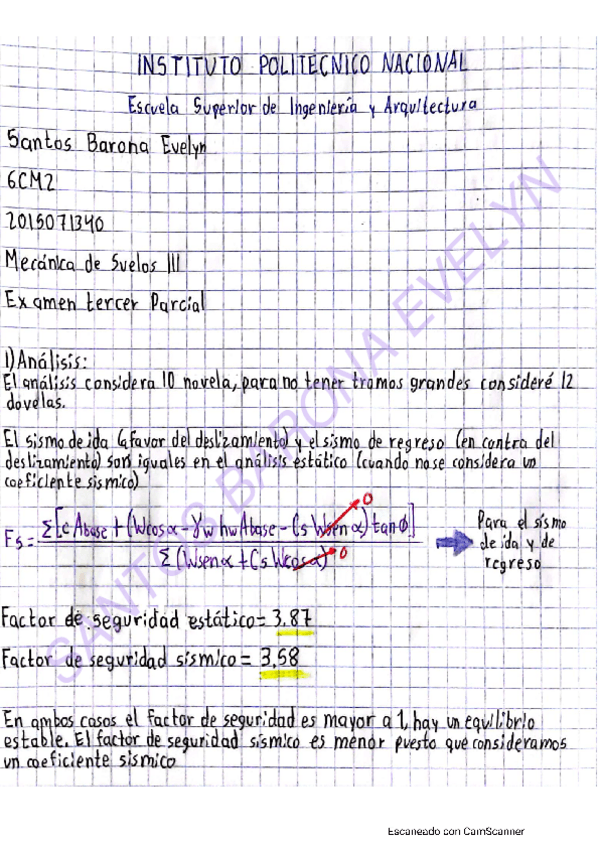 INSTITUTO POLITÉCNICO NACIONAL
Escuela Superior de Ingeniería y Arquitectura
Santos Barona Evelyn
6CM2
2015071340
Mecánica de Suelos III
Examen tercer Parcial
1) Análisis:
El análisis considera 10 novela, para no tener tramos grandes consideré 12
dovelas.
El sismo de ida (a favor del deslizamiento) y el sismo de regreso (en contra del
deslizamiento) son iguales en el análisis estático (cuando no se considera un
coeficiente sísmico)
Fs = Σ[cAbase + (Wcosα - γw hw Abase - Cs Wsenα) tanϕ] / Σ(Wsenα + Cs Wcosα)
0
0
Para el sismo
de ida y de
regreso
Factor de seguridad estático = 3.87
Factor de seguridad sísmico = 3.58
En ambos casos el factor de seguridad es mayor a 1, hay un equilibrio
estable. El factor de seguridad sísmico es menor puesto que consideramos
un coeficiente sísmico
SANTOS BARONA EVELYN
Escaneado con CamScanner